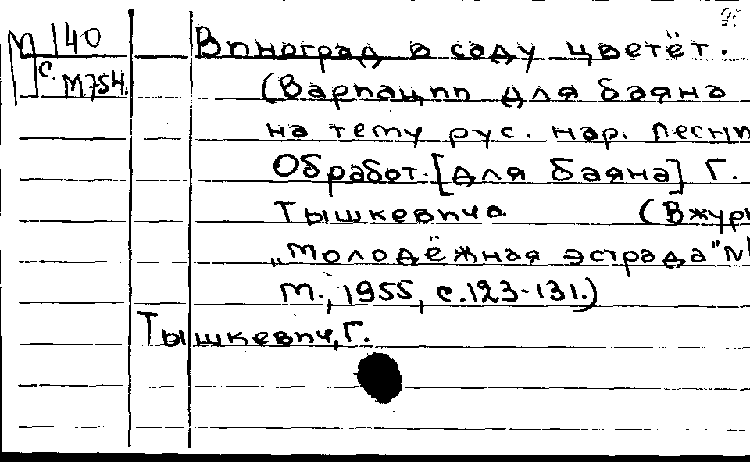 М 140
с. М754.
Виноград в саду цветёт.
(Вариации для баяна
на тему рус. нар. песни
Обработ. [для баяна] Г.
Тышкевича (В журн
„Молодёжная эстрада" №
М., 1955, с.123-131.)
Тышкевич, Г.